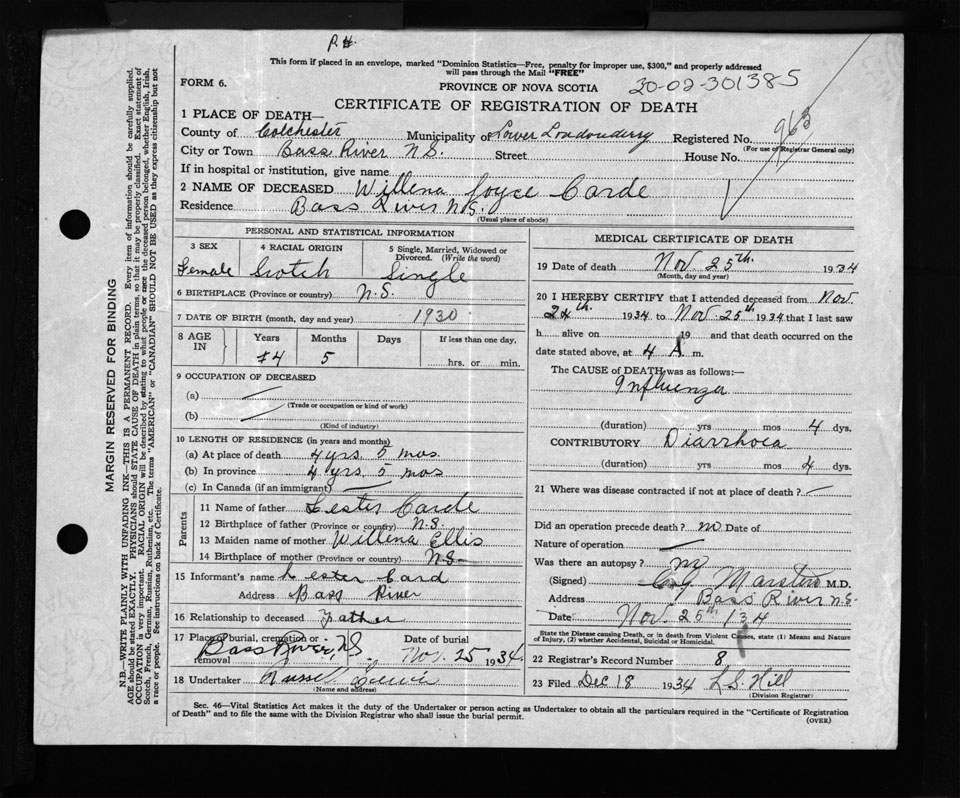 P.H.
This form if placed in an envelope, marked "Dominion Statistics—Free, penalty for improper use, $300," and properly addressed
will pass through the Mail "FREE"
FORM 6.
PROVINCE OF NOVA SCOTIA
20-02-301385
CERTIFICATE OF REGISTRATION OF DEATH
1 PLACE OF DEATH—
County of Colchester Municipality of Lower Londonderry Registered No. 963
(For use of Registrar General only)
City or Town Bass River N.S. Street House No.
If in hospital or institution, give name
2 NAME OF DECEASED Willena Joyce Carde
Residence Bass River N.S.
(Usual place of abode)
PERSONAL AND STATISTICAL INFORMATION
3 SEX 4 RACIAL ORIGIN 5 Single, Married, Widowed or
Divorced. (Write the word)
Female Scotch Single
6 BIRTHPLACE (Province or country) N.S.
7 DATE OF BIRTH (month, day and year) 1930
8 AGE IN Years Months Days If less than one day,
4 5 hrs. or min.
9 OCCUPATION OF DECEASED
(a)
(Trade or occupation or kind of work)
(b)
(Kind of industry)
10 LENGTH OF RESIDENCE (in years and months)
(a) At place of death 4 yrs. 5 mos.
(b) In province 4 yrs. 5 mos
(c) In Canada (if an immigrant)
Parents
11 Name of father Lester Carde
12 Birthplace of father (Province or country) N.S.
13 Maiden name of mother Willena Ellis
14 Birthplace of mother (Province or country) N.S.
15 Informant's name Lester Card
Address Bass River
16 Relationship to deceased Father
17 Place of burial, cremation or removal Bass River, N.S. Date of burial Nov. 25 1934
18 Undertaker Russel
(Name and address)
MEDICAL CERTIFICATE OF DEATH
19 Date of death Nov. 25th. 1934
(Month, day and year)
20 I HEREBY CERTIFY that I attended deceased from Nov.
24th. 1934 to Nov 25th 1934 that I last saw
h alive on 19 and that death occurred on the
date stated above, at 4 A m.
The CAUSE of DEATH was as follows:—
Influenza
(duration) yrs mos 4 dys.
CONTRIBUTORY Diarrhoea
(duration) yrs mos 4 dys.
21 Where was disease contracted if not at place of death?
Did an operation precede death? no Date of
Nature of operation
Was there an autopsy? no
(Signed) Marsters M.D.
Address Bass River N.S.
Date Nov. 25th 1934
State the Disease causing Death, or in death from Violent Causes, state (1) Means and Nature
of Injury, (2) whether Accidental, Suicidal or Homicidal.
22 Registrar's Record Number 8
23 Filed Dec 18 1934 L.S. Hill
(Division Registrar)
Sec. 46—Vital Statistics Act makes it the duty of the Undertaker or person acting as Undertaker to obtain all the particulars required in the "Certificate of Registration
of Death" and to file the same with the Division Registrar who shall issue the burial permit.
(OVER)
MARGIN RESERVED FOR BINDING
N.B.—WRITE PLAINLY WITH UNFADING INK—THIS IS A PERMANENT RECORD. Every item of information should be carefully supplied.
AGE should be stated EXACTLY. PHYSICIANS should STATE CAUSE OF DEATH in plain terms, so that it may be properly classified. Exact statement of
OCCUPATION is very important. RACIAL ORIGIN will be described by stating to what people or race the deceased person belonged, whether English, Irish,
Scotch, French, German, Russian, Ruthenian, etc. The terms "AMERICAN" or "CANADIAN" SHOULD NOT BE USED as they express citizenship but not
a race or people. See instructions on back of Certificate.